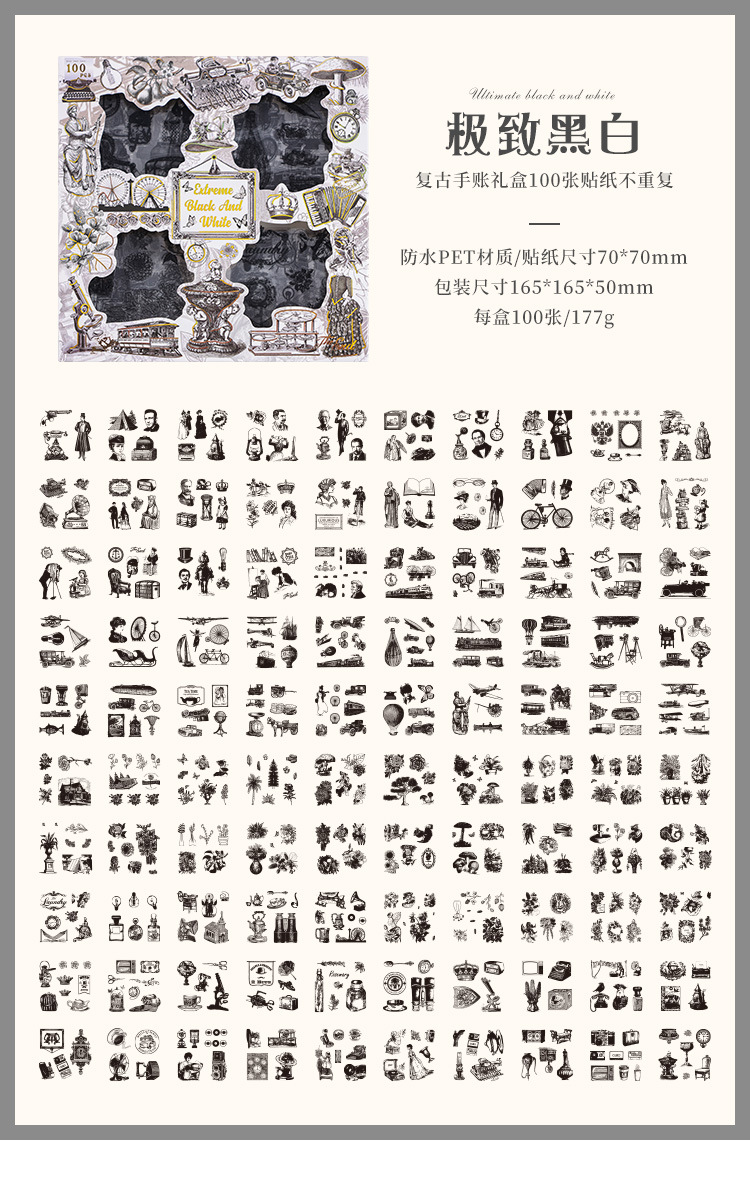 100
PCS
Extreme
Black And
White
Ultimate black and white
极致黑白
复古手账礼盒100张贴纸不重复
防水PET材质/贴纸尺寸70*70mm
包装尺寸165*165*50mm
每盒100张/177g
Laundry